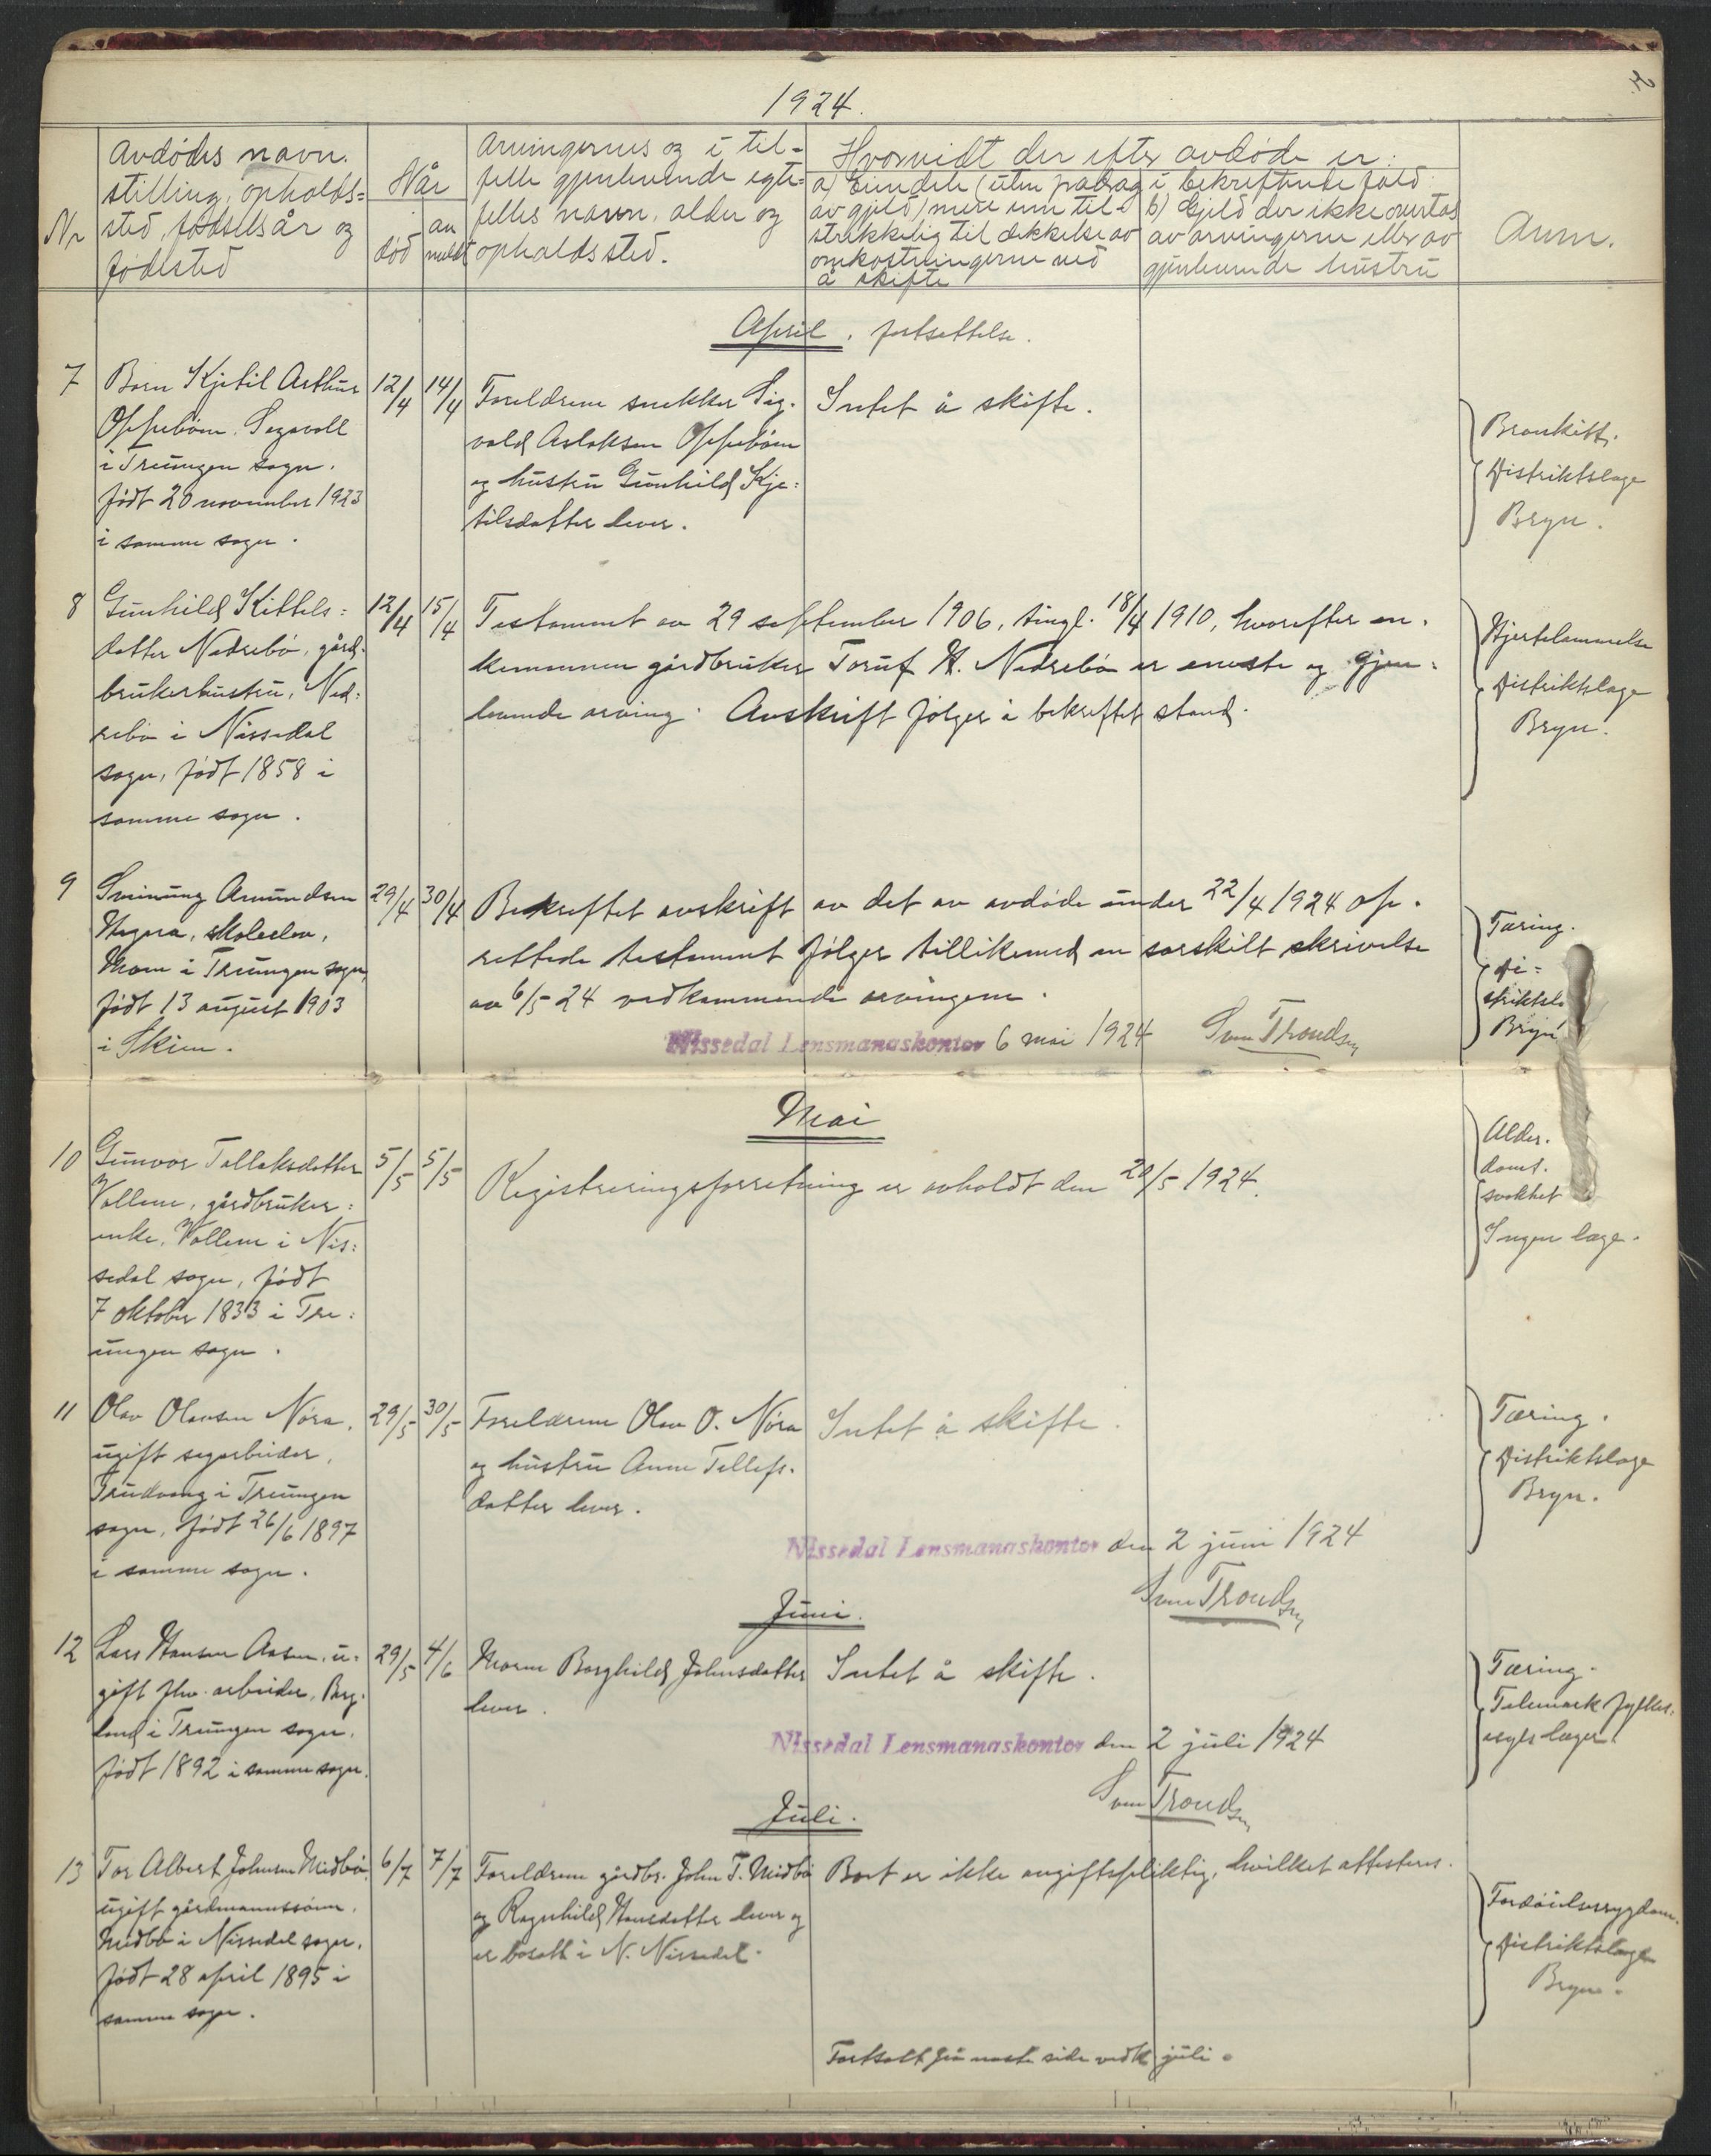 1924.
Nr
Avdødes navn.
stilling, opholds=
sted, fødselsår og
fødested
Når
død
an
meldt
Arvingernes og i til-
felle gjenlevende egte=
felles navn, alder og
opholdssted.
Hvorvidt der efter avdøde er:
a) Eiendele (uten fradrag
av gjeld) mere enn til-
strekkelig til dekkelse av
omkostningerne ved
å skifte
i bekreftende fald
b) Gjeld der ikke overtas
av arvingerne eller av
gjenlevende hustru
Anm.
April. fortsettelse.
7
Barn Kjetil Arthur
Oppebøen, Sagavoll
i Treungen sogn.
født 20 november 1923
i samme sogn.
12/4
14/4
Foreldrene snekker Sig-
vald Aslaksen Oppebøen
og hustru Gunhild Kje=
tilsdatter lever.
Intet å skifte.
Bronkitt.
Distriktslæge
Bryn.
8
Gunhild Kittels=
datter Nedrebø, gård-
brukerhustru, Ned=
rebø i Nissedal
sogn, født 1858 i
samme sogn.
12/4
15/4
Testament av 29 september 1906, tingl. 18/4 1910, hvorefter en-
kemannen gårdbruker Toruf H. Nedrebø er eneste og gjen=
levende arving. Avskrift følger i bekreftet stand.
Hjertelammelse
Distriktslæge
Bryn.
9
Sveinung Amundsen
Hegna, skoleelev,
Moen i Treungen sogn,
født 13 august 1903
i Skien.
29/4
30/4
Bekreftet avskrift av det av avdøde under 22/4 1924 op-
rettede testament følger tillikemed en særskilt skrivelse
av 6/5-24 vedkommende arvingene.
Nissedal Lensmannskontor 6 mai 1924 Svein Trondsen
Tæring.
Di=
striktslæ
Bryn
Mai
10
Gunvor Tallaksdatter
Vollene, gårdbruker=
enke, Vollene i Nis=
sedal sogn, født
7 oktober 1833 i Tre=
ungen sogn.
5/5
5/5
Registreringsforretning er avholdt den 20/5-1924.
Alder-
doms-
svakhet
Ingen læge.
11
Olav Olavsen Nøra,
ugift sagarbeider,
Trudvang i Treungen
sogn, født 26/6 1897
i samme sogn.
29/5
30/5
Foreldrene Olav O. Nøra
og hustru Anne Tellefs-
datter lever.
Intet å skifte.
Tæring.
Distriktslæge
Bryn.
Nissedal Lensmannskontor den 2 juni 1924
Svein Trondsen
Juni.
12
Lars Hansen Aasen, u-
gift arbeider, Berg-
land i Treungen sogn,
født 1892 i samme sogn.
29/5
4/6
Moren Borghild Johnsdatter
lever.
Intet å skifte.
Tæring.
Telemark fylkes-
asyls læger.
Nissedal Lensmannskontor den 2 juli 1924
Svein Trondsen
Juli.
13
Tor Albert Johnsen Midbø,
ugift gårdmannssønn,
Midbø i Nissedal sogn,
født 28 april 1895 i
samme sogn.
6/7
7/7
Foreldrene gårdbr. John T. Midbø
og Ragnhild Hansdatter lever og
er bosatt i N. Nissedal.
Boet er ikke avgiftspliktig, hvilket attesteres.
Distriktslæge
Bryn.
Fortsatt på neste side vedk. juli.